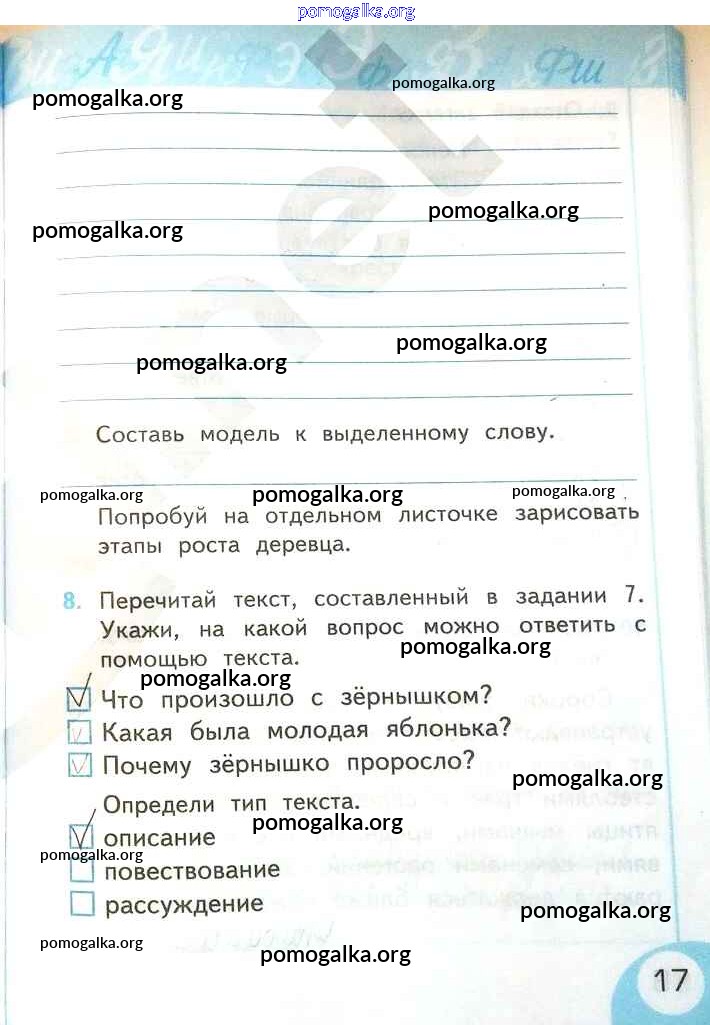 pomogalka.org
pomogalka.org
pomogalka.org
pomogalka.org
pomogalka.org
pomogalka.org
pomogalka.org
Составь модель к выделенному слову.
pomogalka.org
pomogalka.org
pomogalka.org
Попробуй на отдельном листочке зарисовать
этапы роста деревца.
8. Перечитай текст, составленный в задании 7.
Укажи, на какой вопрос можно ответить с
помощью текста.
pomogalka.org
pomogalka.org
Что произошло с зёрнышком?
Какая была молодая яблонька?
Почему зёрнышко проросло?
pomogalka.org
Определи тип текста.
pomogalka.org
описание
pomogalka.org
повествование
рассуждение
pomogalka.org
pomogalka.org
pomogalka.org
17